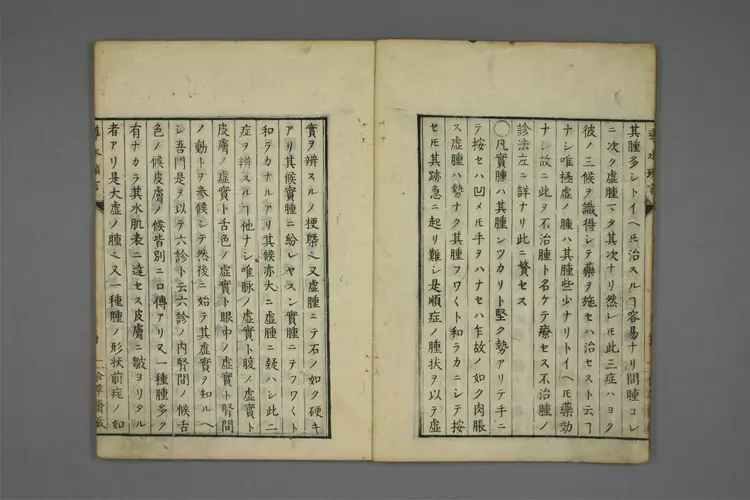 其腫多シトイヘ𪜈治スルヿ容易ナリ間腫コレ
ニ次ク虚腫マタ其次ナリ然レ𪜈此三症ハヨク
彼ノ三候ヲ識得シテ藥ヲ施セハ治セスト云ヿ
ナシ唯極虚ノ腫ハ其腫些少ナリトイヘ𪜈藥効
ナシ故ニ此ヲ不治腫ト名ケテ療セス不治腫ノ
診法左ニ詳ナリ此ニ贅セス
○凡實腫ハ其腫シツカリト堅ク勢アリテ手ニ
テ按セハ凹メ𪜈手ヲハナセハ乍故ノ如ク肉脹
ス虚腫ハ勢ナク其腫フワ〱ト和ラカニシテ按
セ𪜈其跡急ニ起リ難シ是順症ノ腫状ヲ以テ虚
實ヲ辨スルノ梗槩ニ又虚腫ニテ石ノ如ク硬キ
アリ其候實腫ニ紛レヤスシ實腫ニテフワ〱ト
和ラカナルアリ其候亦大ニ虚腫ニ疑ハシ此二
症ヲ辨スルヿ他ナシ唯脉ノ虚實ト腹ノ虚實ト
皮膚ノ虚實ト舌色ノ虚實ト眼中ノ虚實ト腎間
ノ動トヲ参候シテ然後ニ始テ其虚實ヲ知ルヘ
シ吾門是ヲ以テ六診ト云六診ノ内腎間ノ候舌
色ノ候皮膚ノ候皆別ニ口傳アリ又一種腫多ク
有ナカラ其水肌表ニ達セス皮膚ニ皺ヲリタル
者アリ是大虚ノ腫ニ又一種腫ノ形状前症ノ如